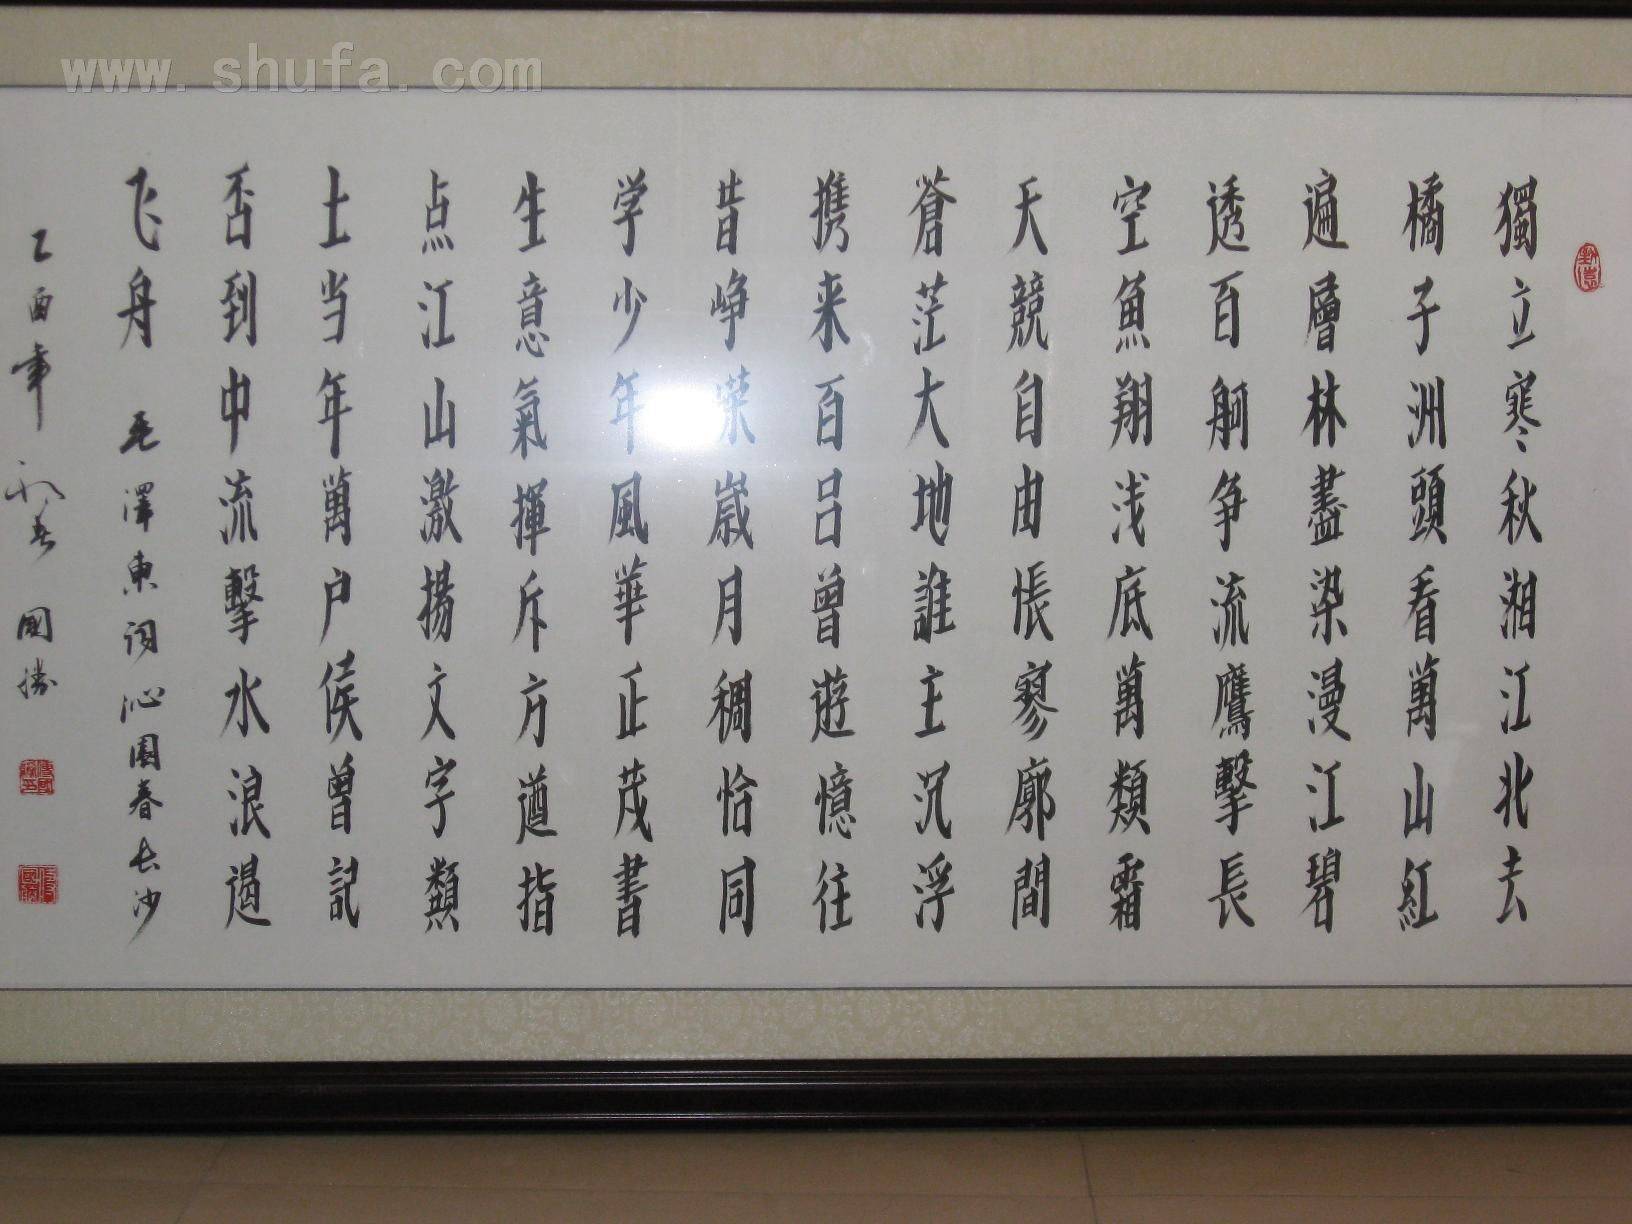 www.shufa.com
獨立寒秋湘江北去
橘子洲頭看萬山紅
遍層林盡染漫江碧
透百舸争流鷹擊長
空魚翔浅底萬類霜
天競自由悵寥廓間
蒼茫大地誰主沉浮
携来百吕曾遊憶往
昔峥荣歲月稠恰同
学少年風華正茂書
生意氣揮斥方遒指
点江山激揚文字類
土当年萬户侯曾記
否到中流擊水浪遏
飞舟 毛澤東词沁園春长沙
乙酉年 國勝